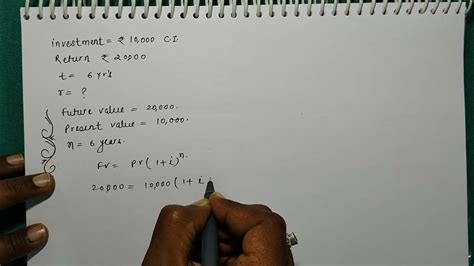 investment = ₹ 10,000 C.I.
Return ₹ 20,000
t = 6 yr's
r = ?
Future value = 20,000.
Present value = 10,000.
n = 6 years.
FV = PV ( 1+ i )ⁿ.
20,000 = 10,000 ( 1+ i